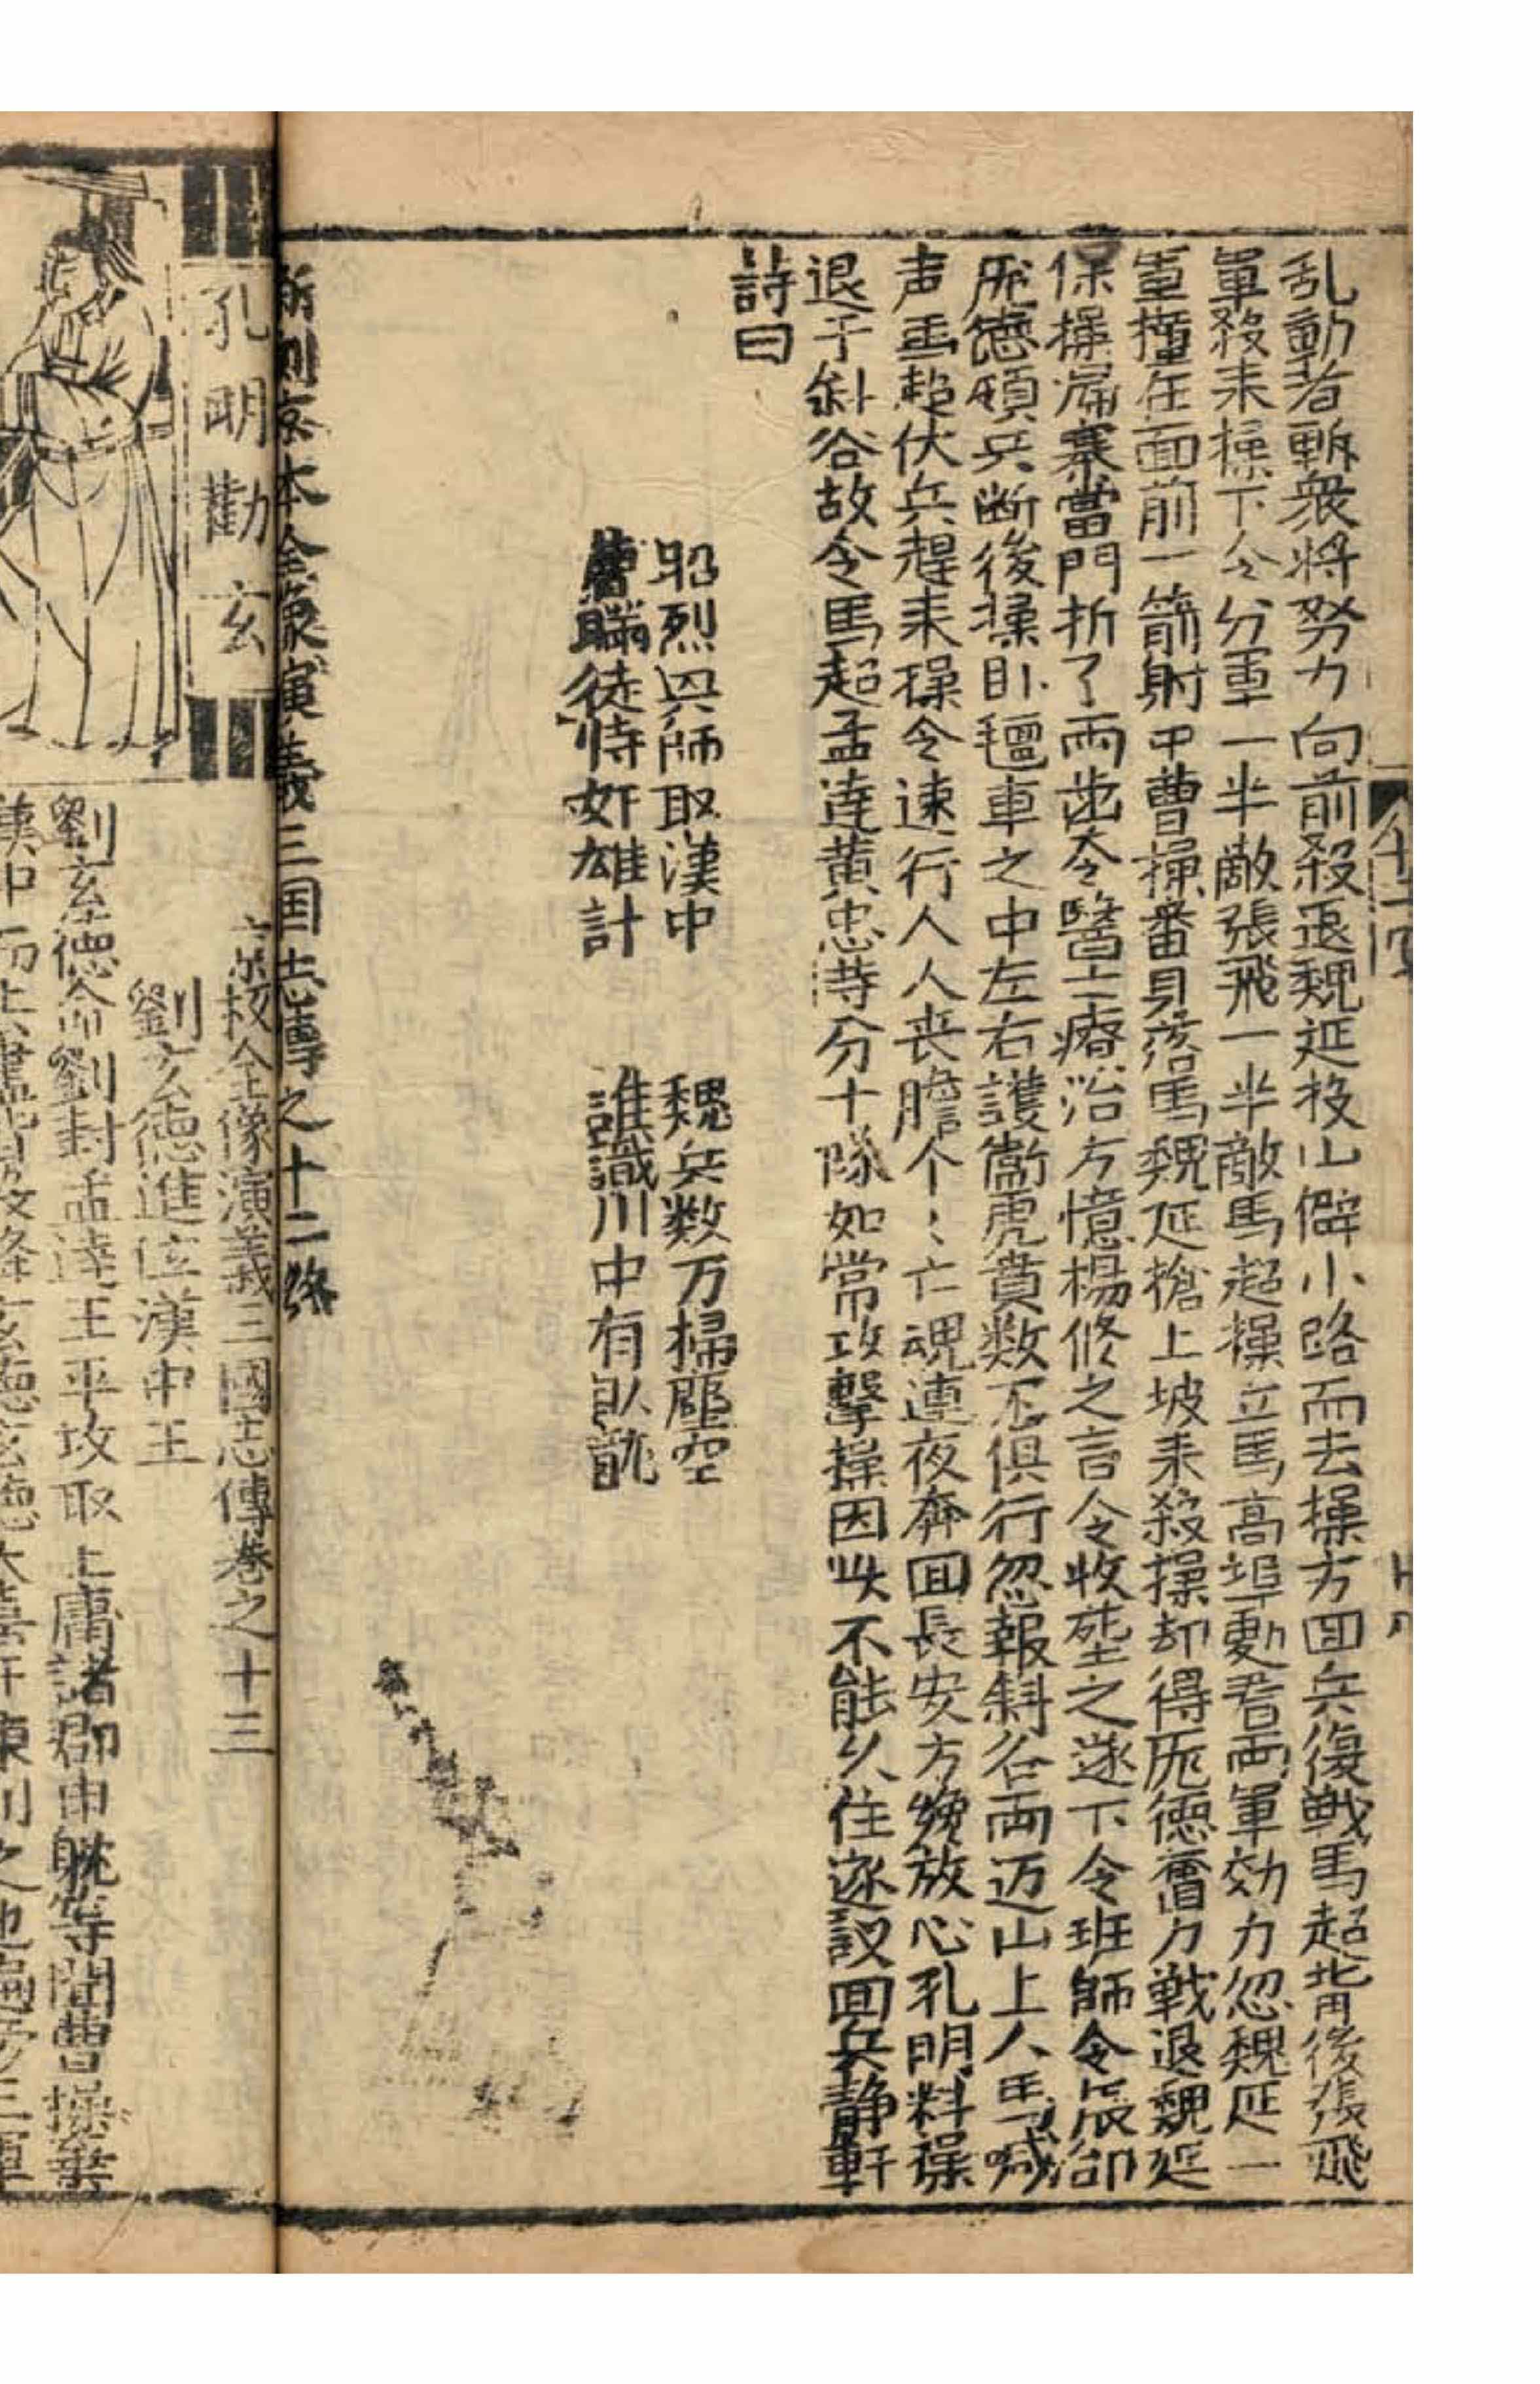 乱動者斬衆將努力向前殺退魏延投山僻小路而去操方囬兵復戦馬超背後張飛
軍殺来操下令分軍一半敵張飛一半敵馬超操立馬高埠動看兩軍効力忽魏延一
軍撞在面前一箭射中曹操番身落馬魏延槍上坡来殺操却得厖德奮力戦退魏延
保操歸寨當門折了兩齿令醫士療治方憶楊修之言令收塟之遂下令班師令衆卻
厖德領兵断後操卧氊車之中左右護衞虎賁数不俱行忽報斜谷兩边山上人馬喊
声馬超伏兵趕来操令速行人人丧膽个〻亡魂連夜奔囬長安方纔放心孔明料操
退于斜谷故令馬超孟達黄忠䓁分十隊如常攻擊操因此不能久住遂議囬兵静軒
詩曰
昭烈兴師取漢中 魏兵数万掃塵空
曹瞞徒恃奸雄計 誰識川中有臥龍
新刻京本全像演義三国志傳之十二終
孔明勸玄
京板全像演義三國志傳卷之十三
劉玄德進位漢中王
劉玄德命劉封孟達王平攻取上庸諸郡申躭等聞曹操棄